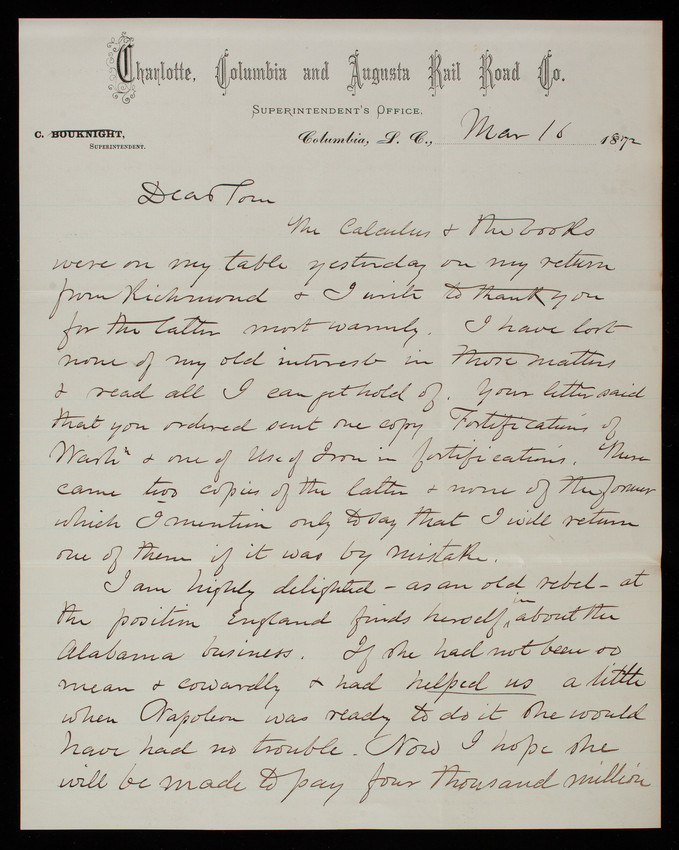 Charlotte, Columbia and Augusta Rail Road Co.
Superintendent's Office,
C. BOUKNIGHT,
Superintendent.
Columbia, S. C., Mar 16 1872
Dear Tom
The Calculus & the books
were on my table yesterday on my return
from Richmond & I write to thank you
for the latter most warmly. I have lost
none of my old interest in those matters
& read all I can get hold of. Your letter said
that you ordered sent one copy Fortifications of
Washn & one of Use of Iron in fortifications. There
came two copies of the latter & none of the former
which I mention only to say that I will return
one of them if it was by mistake.
I am highly delighted - as an old rebel - at
the position England finds herself in about the
Alabama business. If she had not been so
mean & cowardly & had helped us a little
when Napoleon was ready to do it she would
have had no trouble. Now I hope she
will be made to pay four thousand million